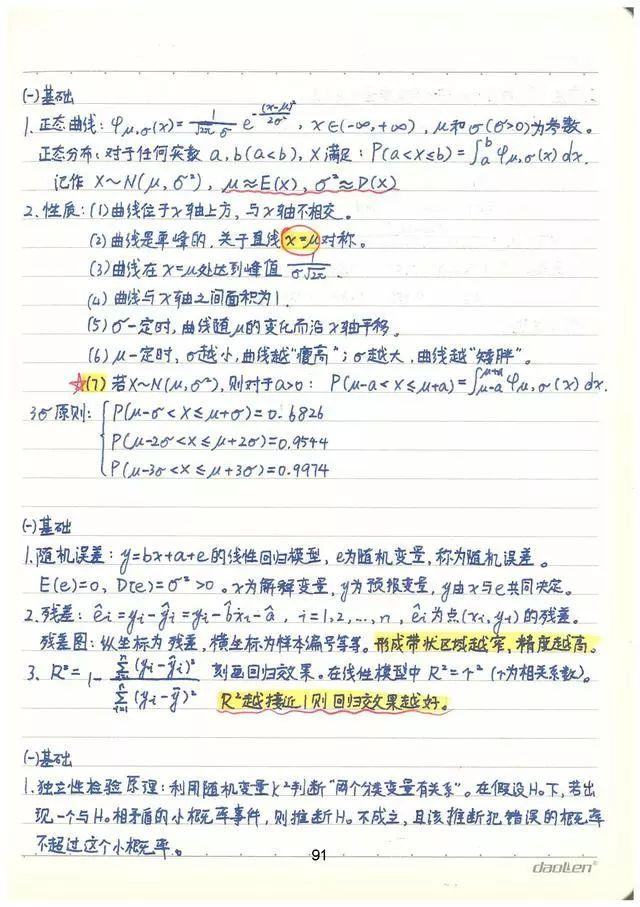 (一)基础
1. 正态曲线：φμ,σ(x)= 1/(√2π σ) e^(-(x-μ)²/2σ²)，x∈(-∞,+∞)，μ和σ(σ>0)为参数。
正态分布：对于任何实数 a,b(a<b)，X满足：P(a<X≤b)=∫ₐᵇ φμ,σ(x) dx.
记作 X~N(μ,σ²)，μ≈E(X)，σ²≈D(X)
2. 性质：(1)曲线位于x轴上方，与x轴不相交。
(2)曲线是单峰的，关于直线x=μ对称。
(3)曲线在x=μ处达到峰值 1/(σ√2π).
(4)曲线与x轴之间面积为1.
(5)σ一定时，曲线随μ的变化而沿x轴平移。
(6)μ一定时，σ越小，曲线越"瘦高"；σ越大，曲线越"矮胖"。
☆(7)若X~N(μ,σ²)，则对于a>0：P(μ-a<X≤μ+a)=∫_{μ-a}^{μ+a} φμ,σ(x) dx.
3σ原则：{P(μ-σ<X≤μ+σ)=0.6826
P(μ-2σ<X≤μ+2σ)=0.9544
P(μ-3σ<X≤μ+3σ)=0.9974
(一)基础
1. 随机误差：y=bx+a+e的线性回归模型，e为随机变量，称为随机误差。
E(e)=0，D(e)=σ²>0。x为解释变量，y为预报变量，y由x与e共同决定。
2. 残差：êi=yi-ŷi=yi-b̂xi-â，i=1,2,…,n，êi为点(xi,yi)的残差。
残差图：纵坐标为残差，横坐标为样本编号等等。形成带状区域越窄，精度越高。
3. R²=1-∑ⁿᵢ₌₁(yi-ŷi)²/∑ⁿᵢ₌₁(yi-ȳ)² 刻画回归效果。在线性模型中R²=r²(r为相关系数)。
R²越接近1则回归效果越好。
(一)基础
1. 独立性检验原理：利用随机变量K²判断"两个分类变量有关系"。在假设H₀下，若出
现一个与H₀相矛盾的小概率事件，则推断H₀不成立，且该推断犯错误的概率
不超过这个小概率。
91
daolen®